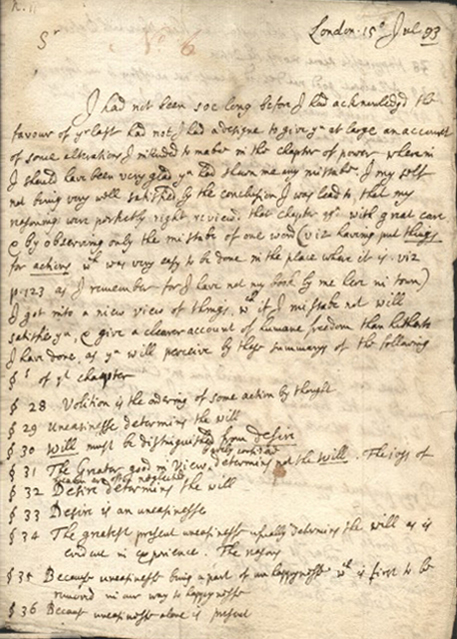 London. 15º Jul 93
Sr
I had not been soe long before I had acknowledgd the
favour of yr last had not I had a designe to give yu at large an account
of some alterations I intended to make in the chapter of power wherein
I should have been very glad yu had shewn me any mistake, I my self
not being very well satisfied by the conclusion I was lead to, that my
reasoning were perfectly right review. that chapter again with great care
& by observing only the mistake of one word (viz having put things
for actions wch was very easy to be done in the place where it is. viz
p. 123 as I remember for I have not my book by me here in town)
I got into a new view of things, wch if I mistake not will
satisfie yu, & give a clearer account of humane freedom than hitherto
I have done, as yu will perceive by these summarys of the following
§s of yt chapter
§ 28 Volition is the ordering of some action by thought
§ 29 Uneasinesse determins the will
§ 30 Will must be distinguished from desire
§ 31 The Greater good in view barely considerd determins not the Will. The joys of
heaven are often neglected
§ 32 Desire determins the will
§ 33 Desire is an uneasinesse
§ 34 The greatest present uneasinesse usually determins the will as is
evident in experience. The reason
§ 35 Because uneasinesse being a part of unhappynesse wch is first to be
removed in our way to happynesse
§ 36 Because uneasinesse alone is present